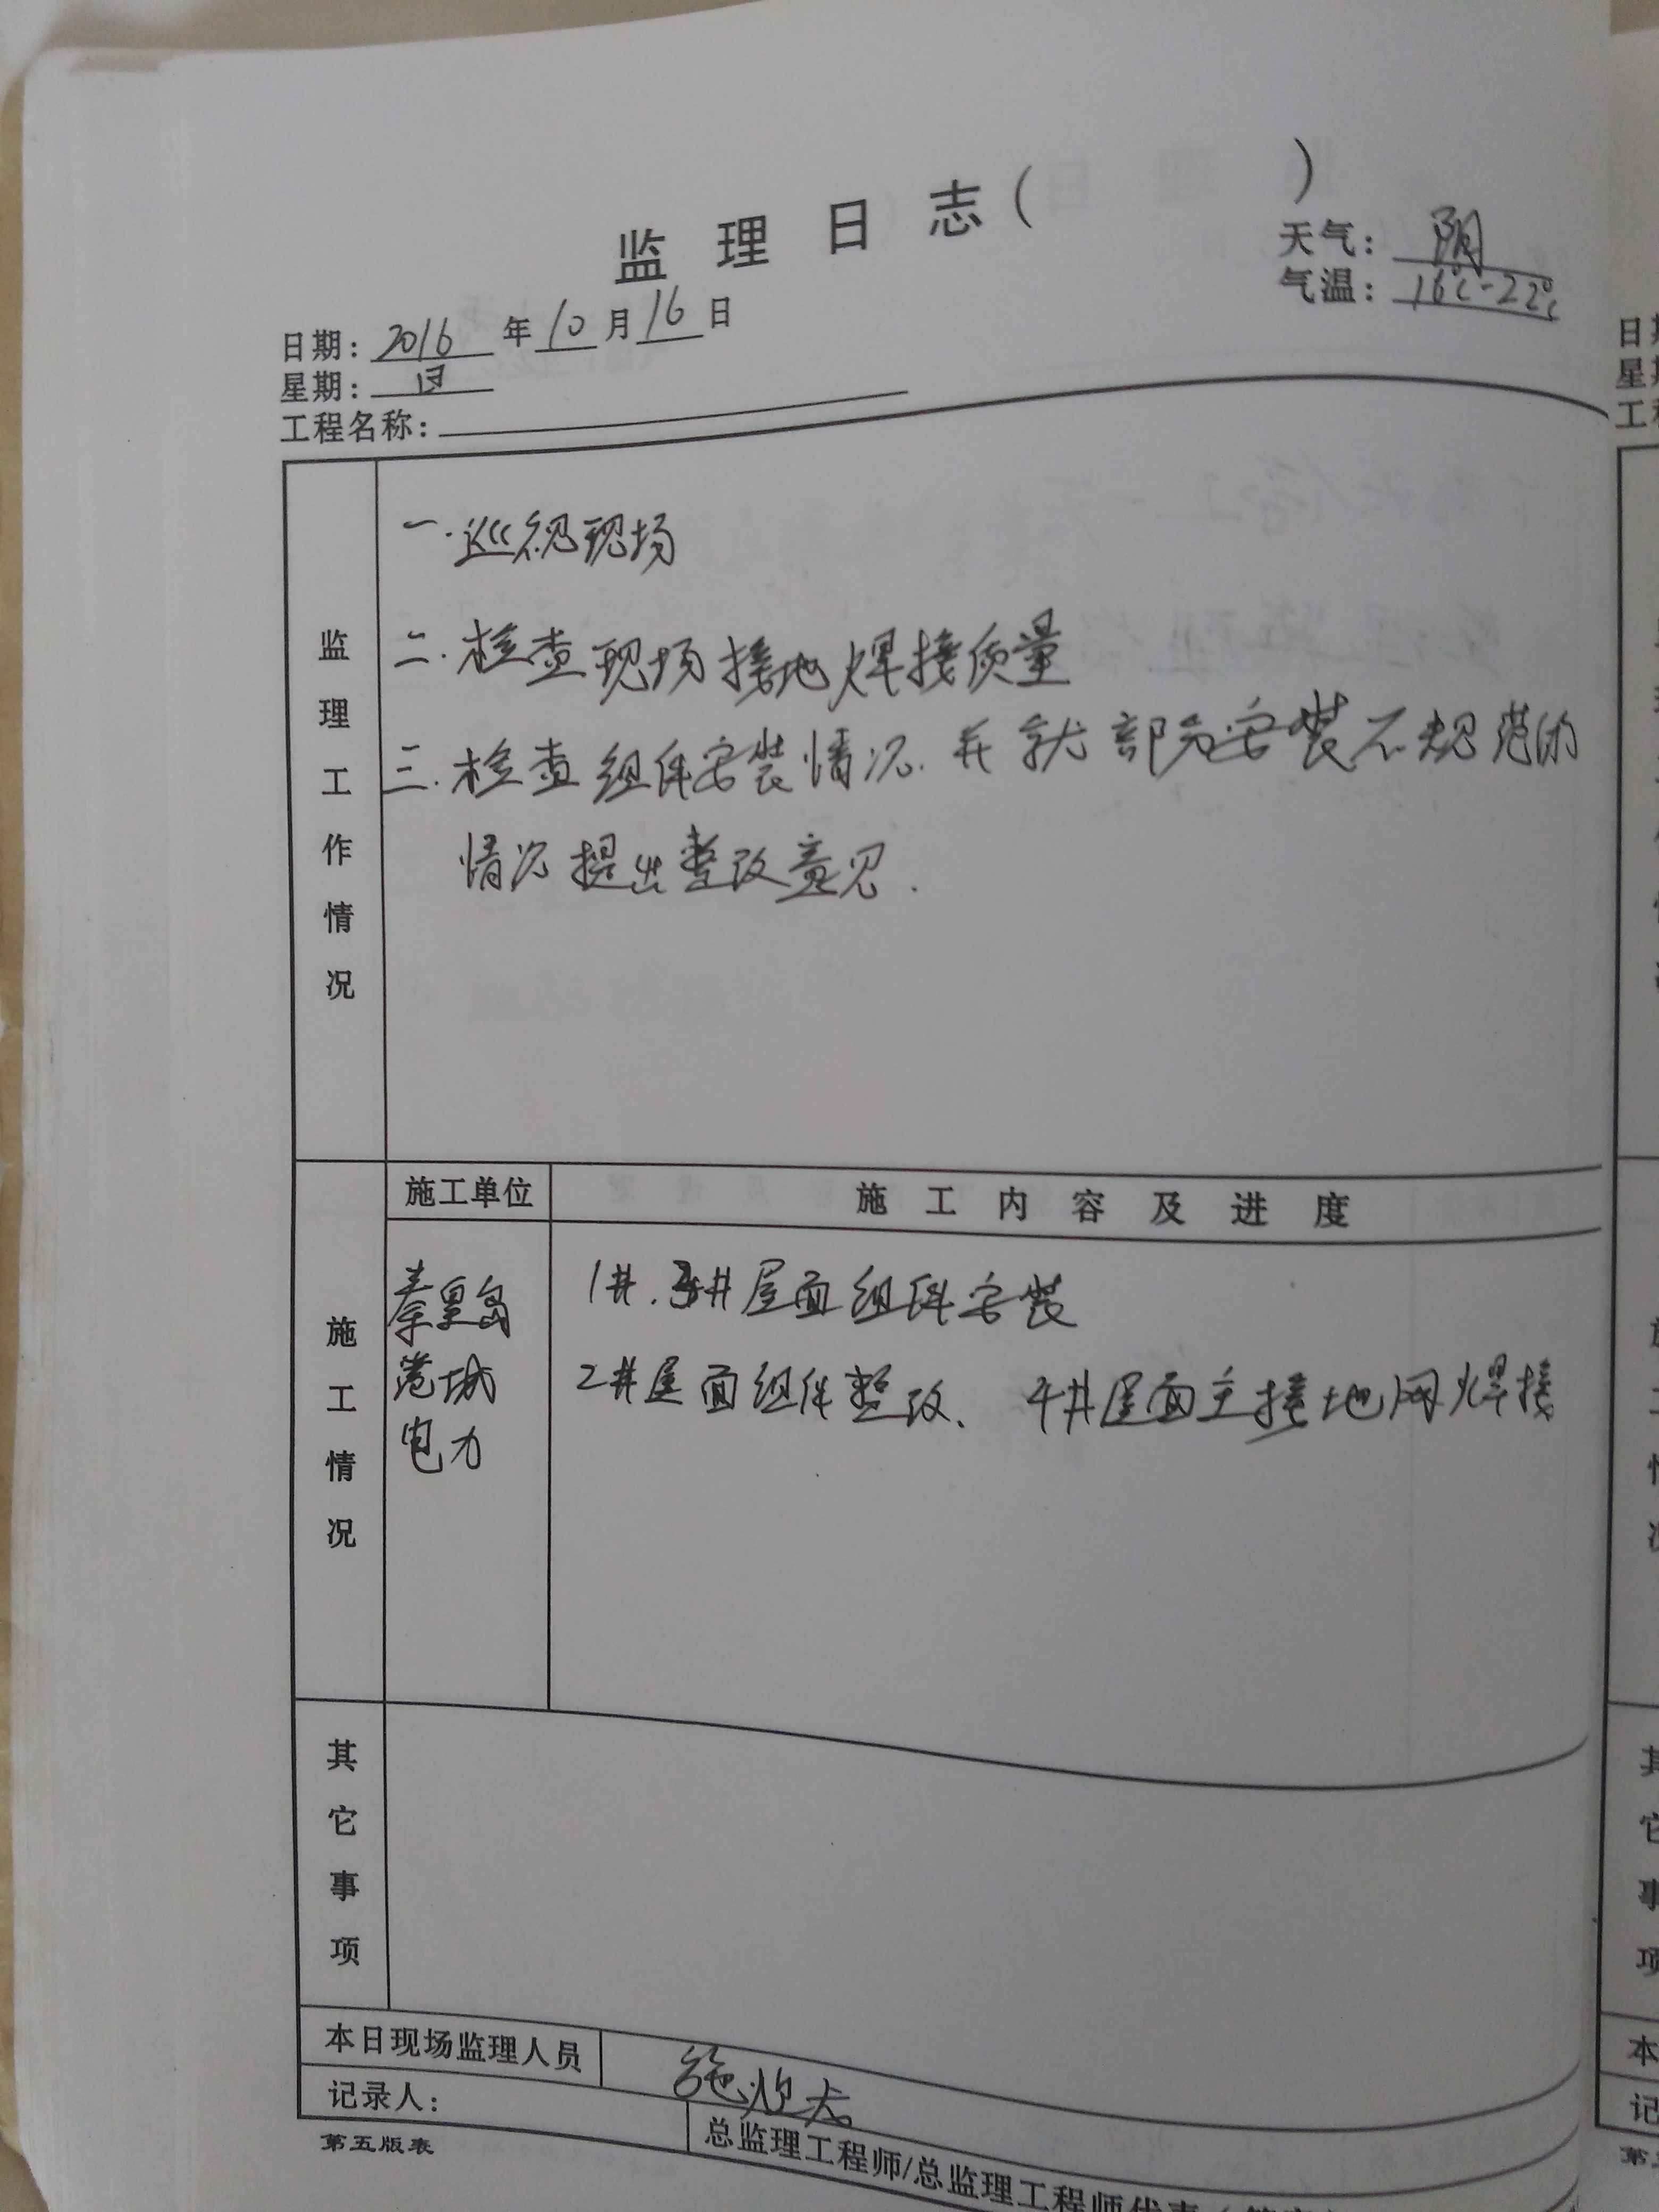 监理日志（ ）
天气：阴
气温：16℃-22℃
日期：2016年10月16日
星期：日
工程名称：
监理工作情况
一.巡视现场
二.检查现场接地焊接质量
三.检查组件安装情况.并就部分安装不规范的
情况提出整改意见.
施工单位 施工内容及进度
施工情况
秦皇岛
港城
电力
1#.3#屋面组件安装
2#屋面组件整改、4#屋面主接地网焊接
其它事项
本日现场监理人员
记录人：
总监理工程师/总监理工程师代表
第五版表